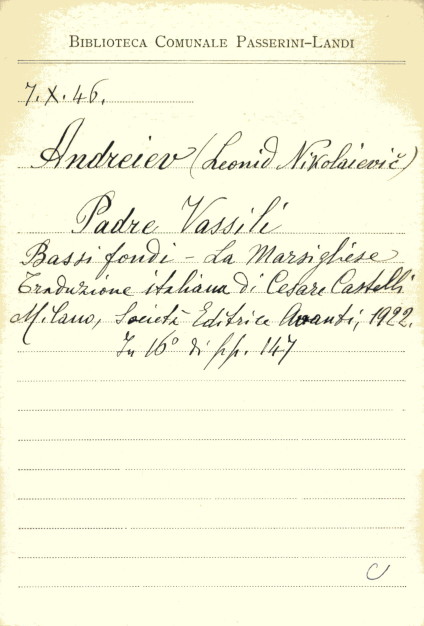 BIBLIOTECA COMUNALE PASSERINI-LANDI
7.X.46.
Andreiev (Leonid Nikolaievič)
Padre Vassili
Bassi fondi - La Marsigliese
Traduzione italiana di Cesare Castelli
Milano, Società Editrice Avanti, 1922.
In 16° di pp. 147
C